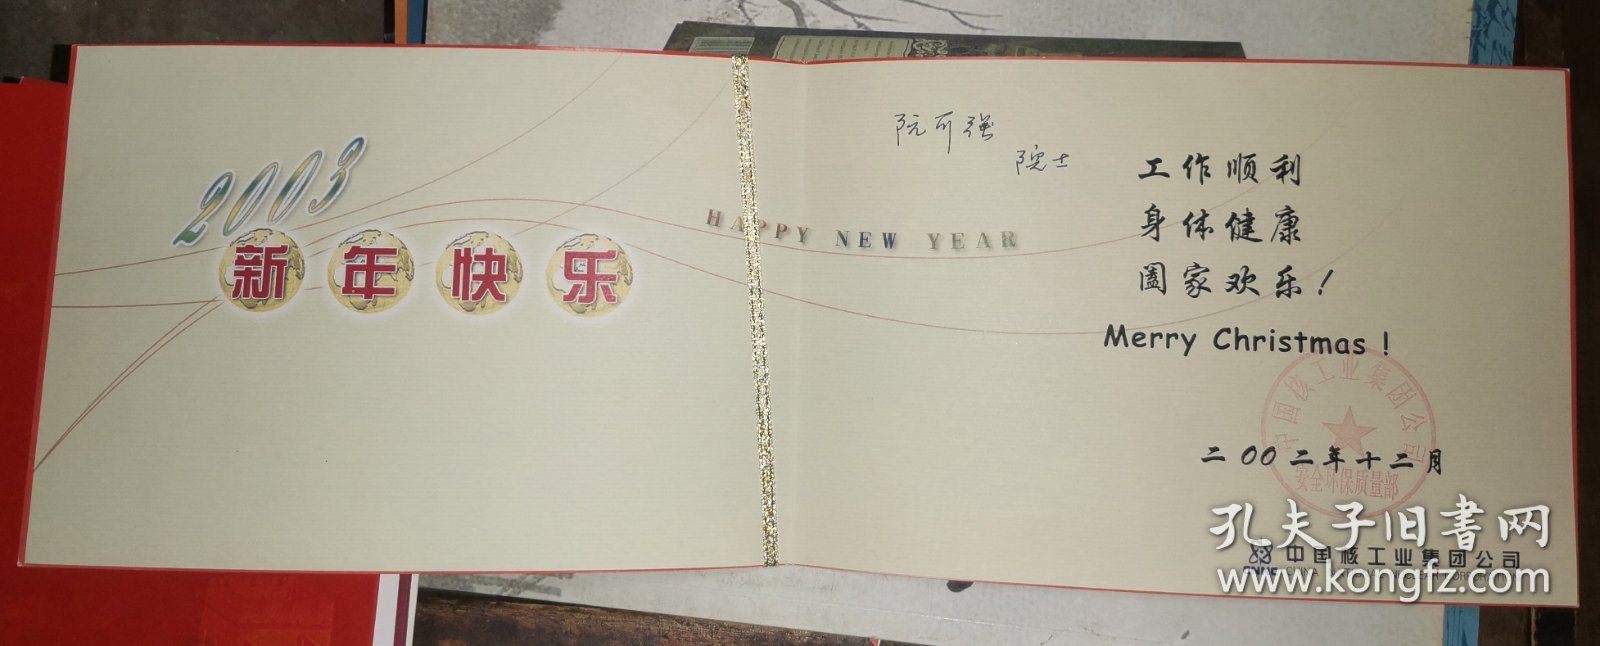 2003
新年快乐
HAPPY NEW YEAR
阮可强
院士
工作顺利
身体健康
阖家欢乐！
Merry Christmas！
中国核工业集团公司
安全环保质量部
二00二年十二月
中国核工业集团公司
CHINA
孔夫子旧书网
www.kongfz.com